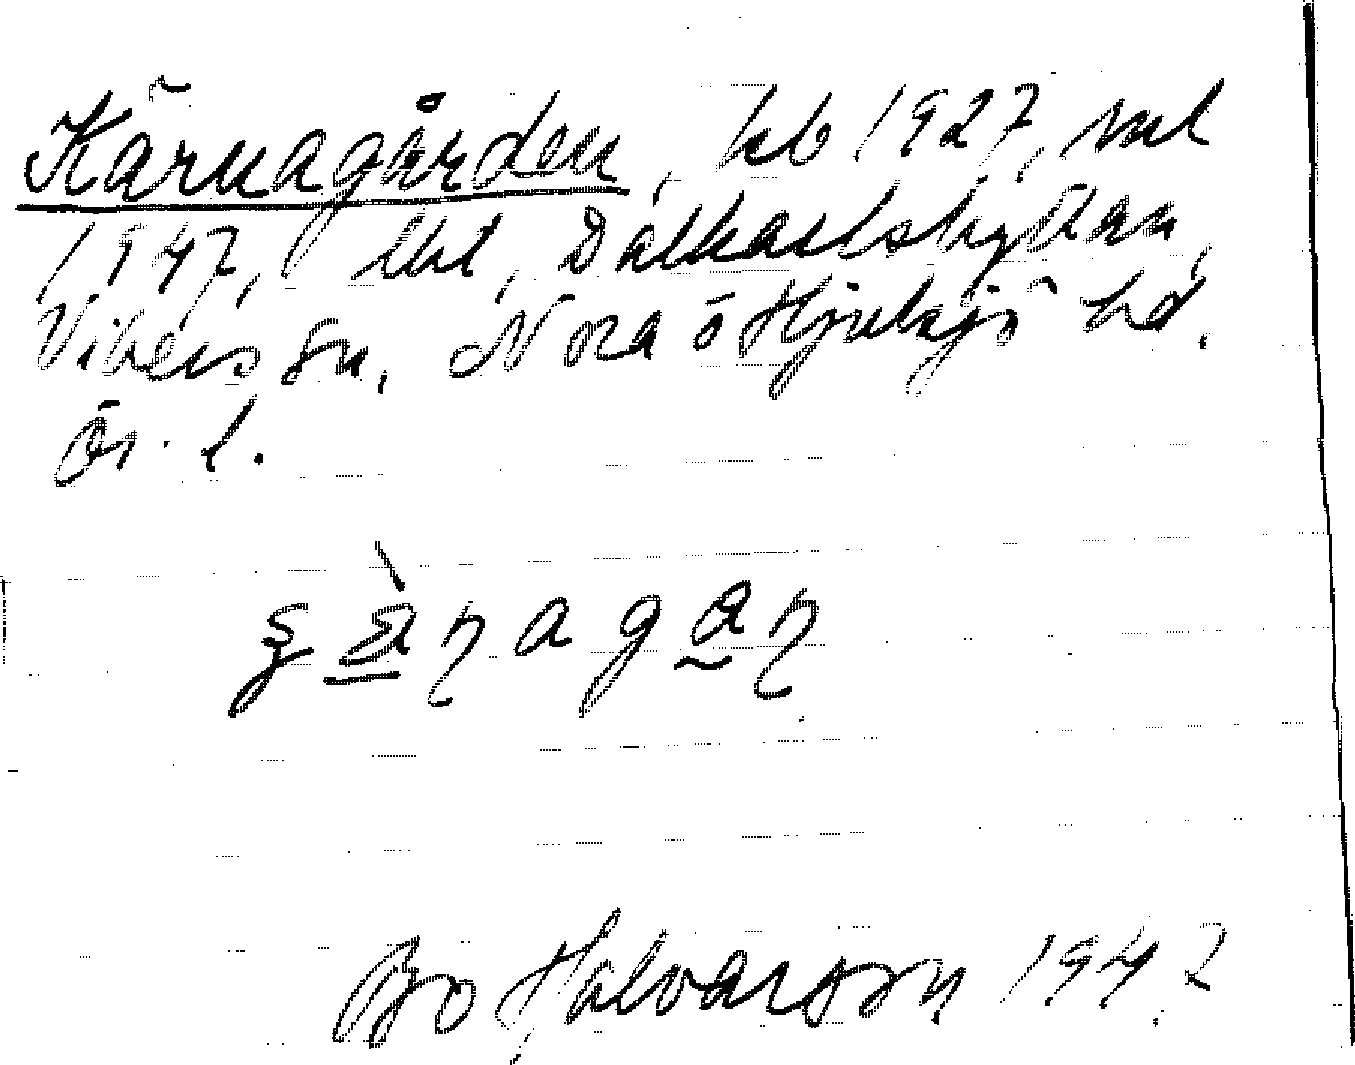 Kärnagården, kb 1927, ml
1947, lht, Dalkarlshyttan,
Vikers sn, Nora ö Hjulsjö hd.
Ör. l.
Bo Halvarson 1942